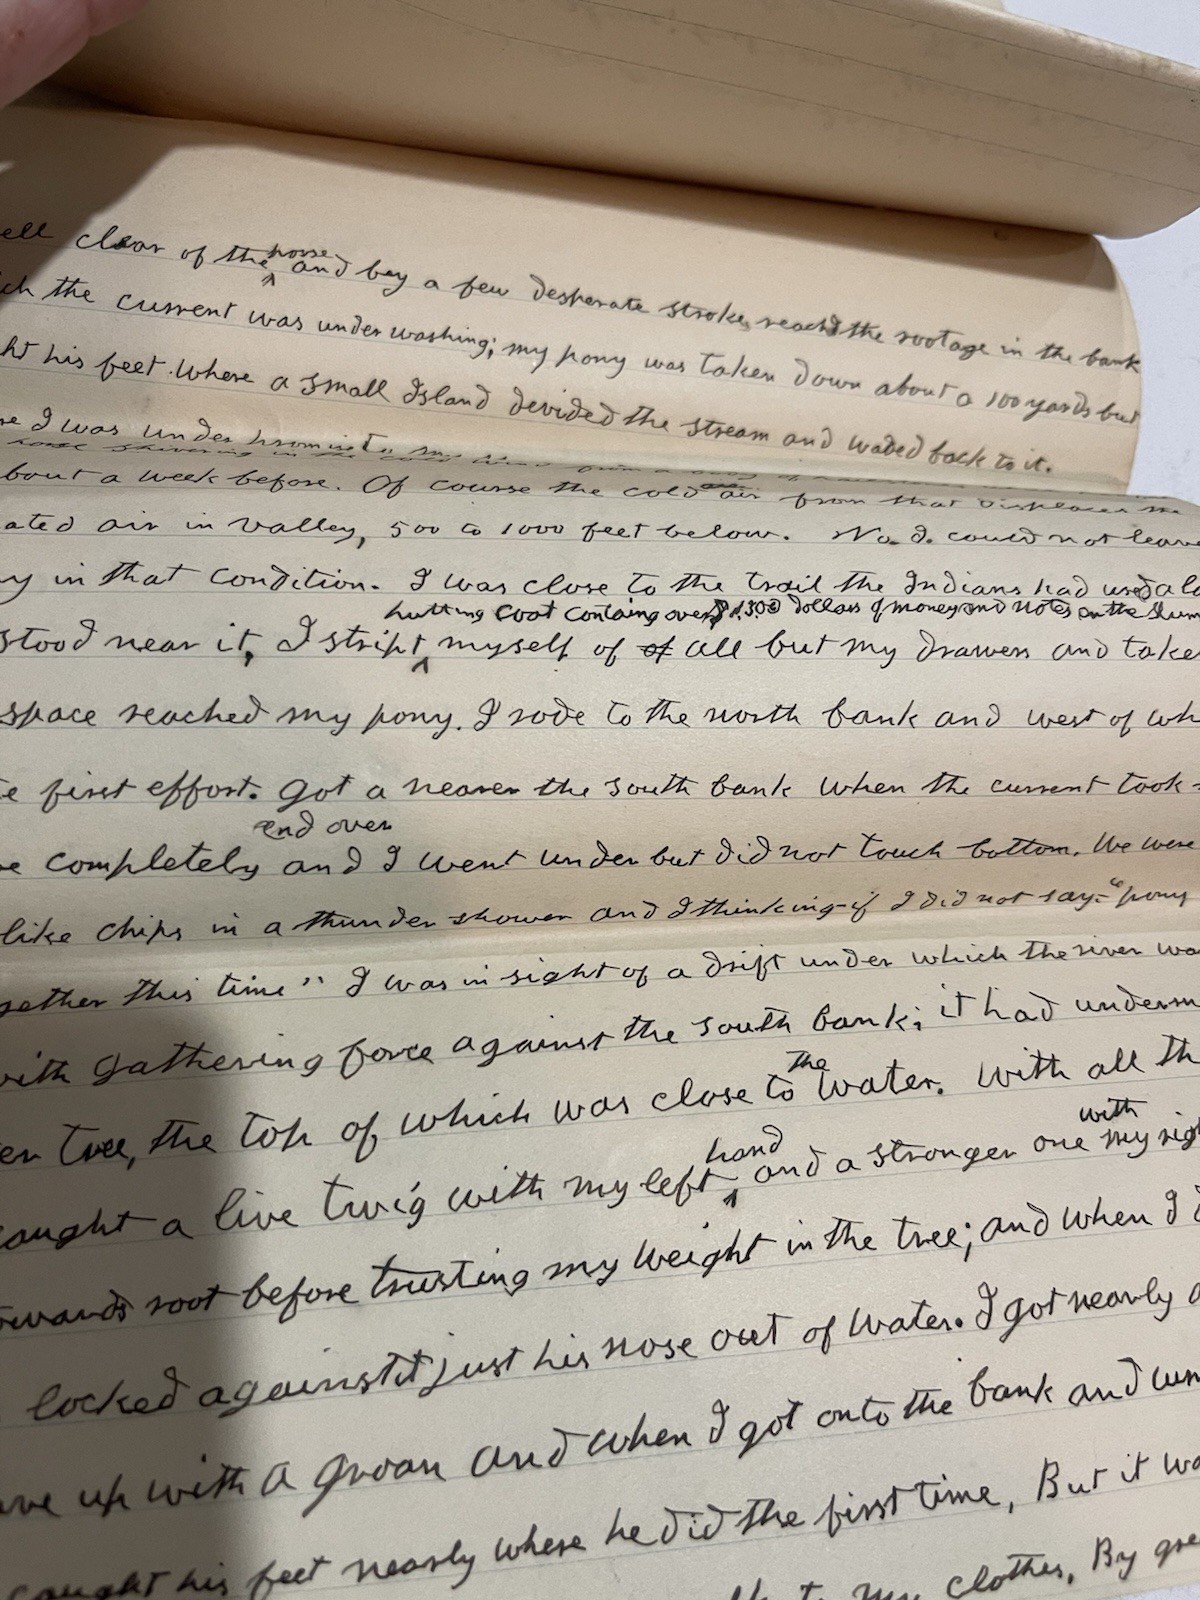 ell clear of the horse and bey a few desperate stroke, reachd the rootage in the bank
ch the current was under washing; my pony was taken down about a 100 yards but
ht his feet. Where a small Island devided the stream and waded back to it.
re I was under
about a week before. Of course the cold air from that displaces the
ated air in valley, 500 to 1000 feet below. No I could not leave
y in that condition. I was close to the trail the Indians had used alo
hutting coat containg over $1300 dollars of money and notes on the
stood near it, I stript myself of of all but my drawers and take
space reached my pony. I rode to the north bank and west of wh
e first effort. Got a nearer the south bank when the current took
end over
e completely and I went under but did not touch bottom. We were
like chips in a thunder shower and I thinking-if I did not say- "pony
gether this time" I was in sight of a drift under which the river wa
with gathering force against the south bank; it had underm
the
er tree, the top of which was close to water. With all th
hand with
caught a live twig with my left and a stronger one my righ
owards root before trusting my weight in the tree; and when I d
locked against it just his nose out of water. I got nearly a
ve up with a groan and when I got onto the bank and
caught his feet nearly where he did the first time, But it wa
to my clothes, By gre